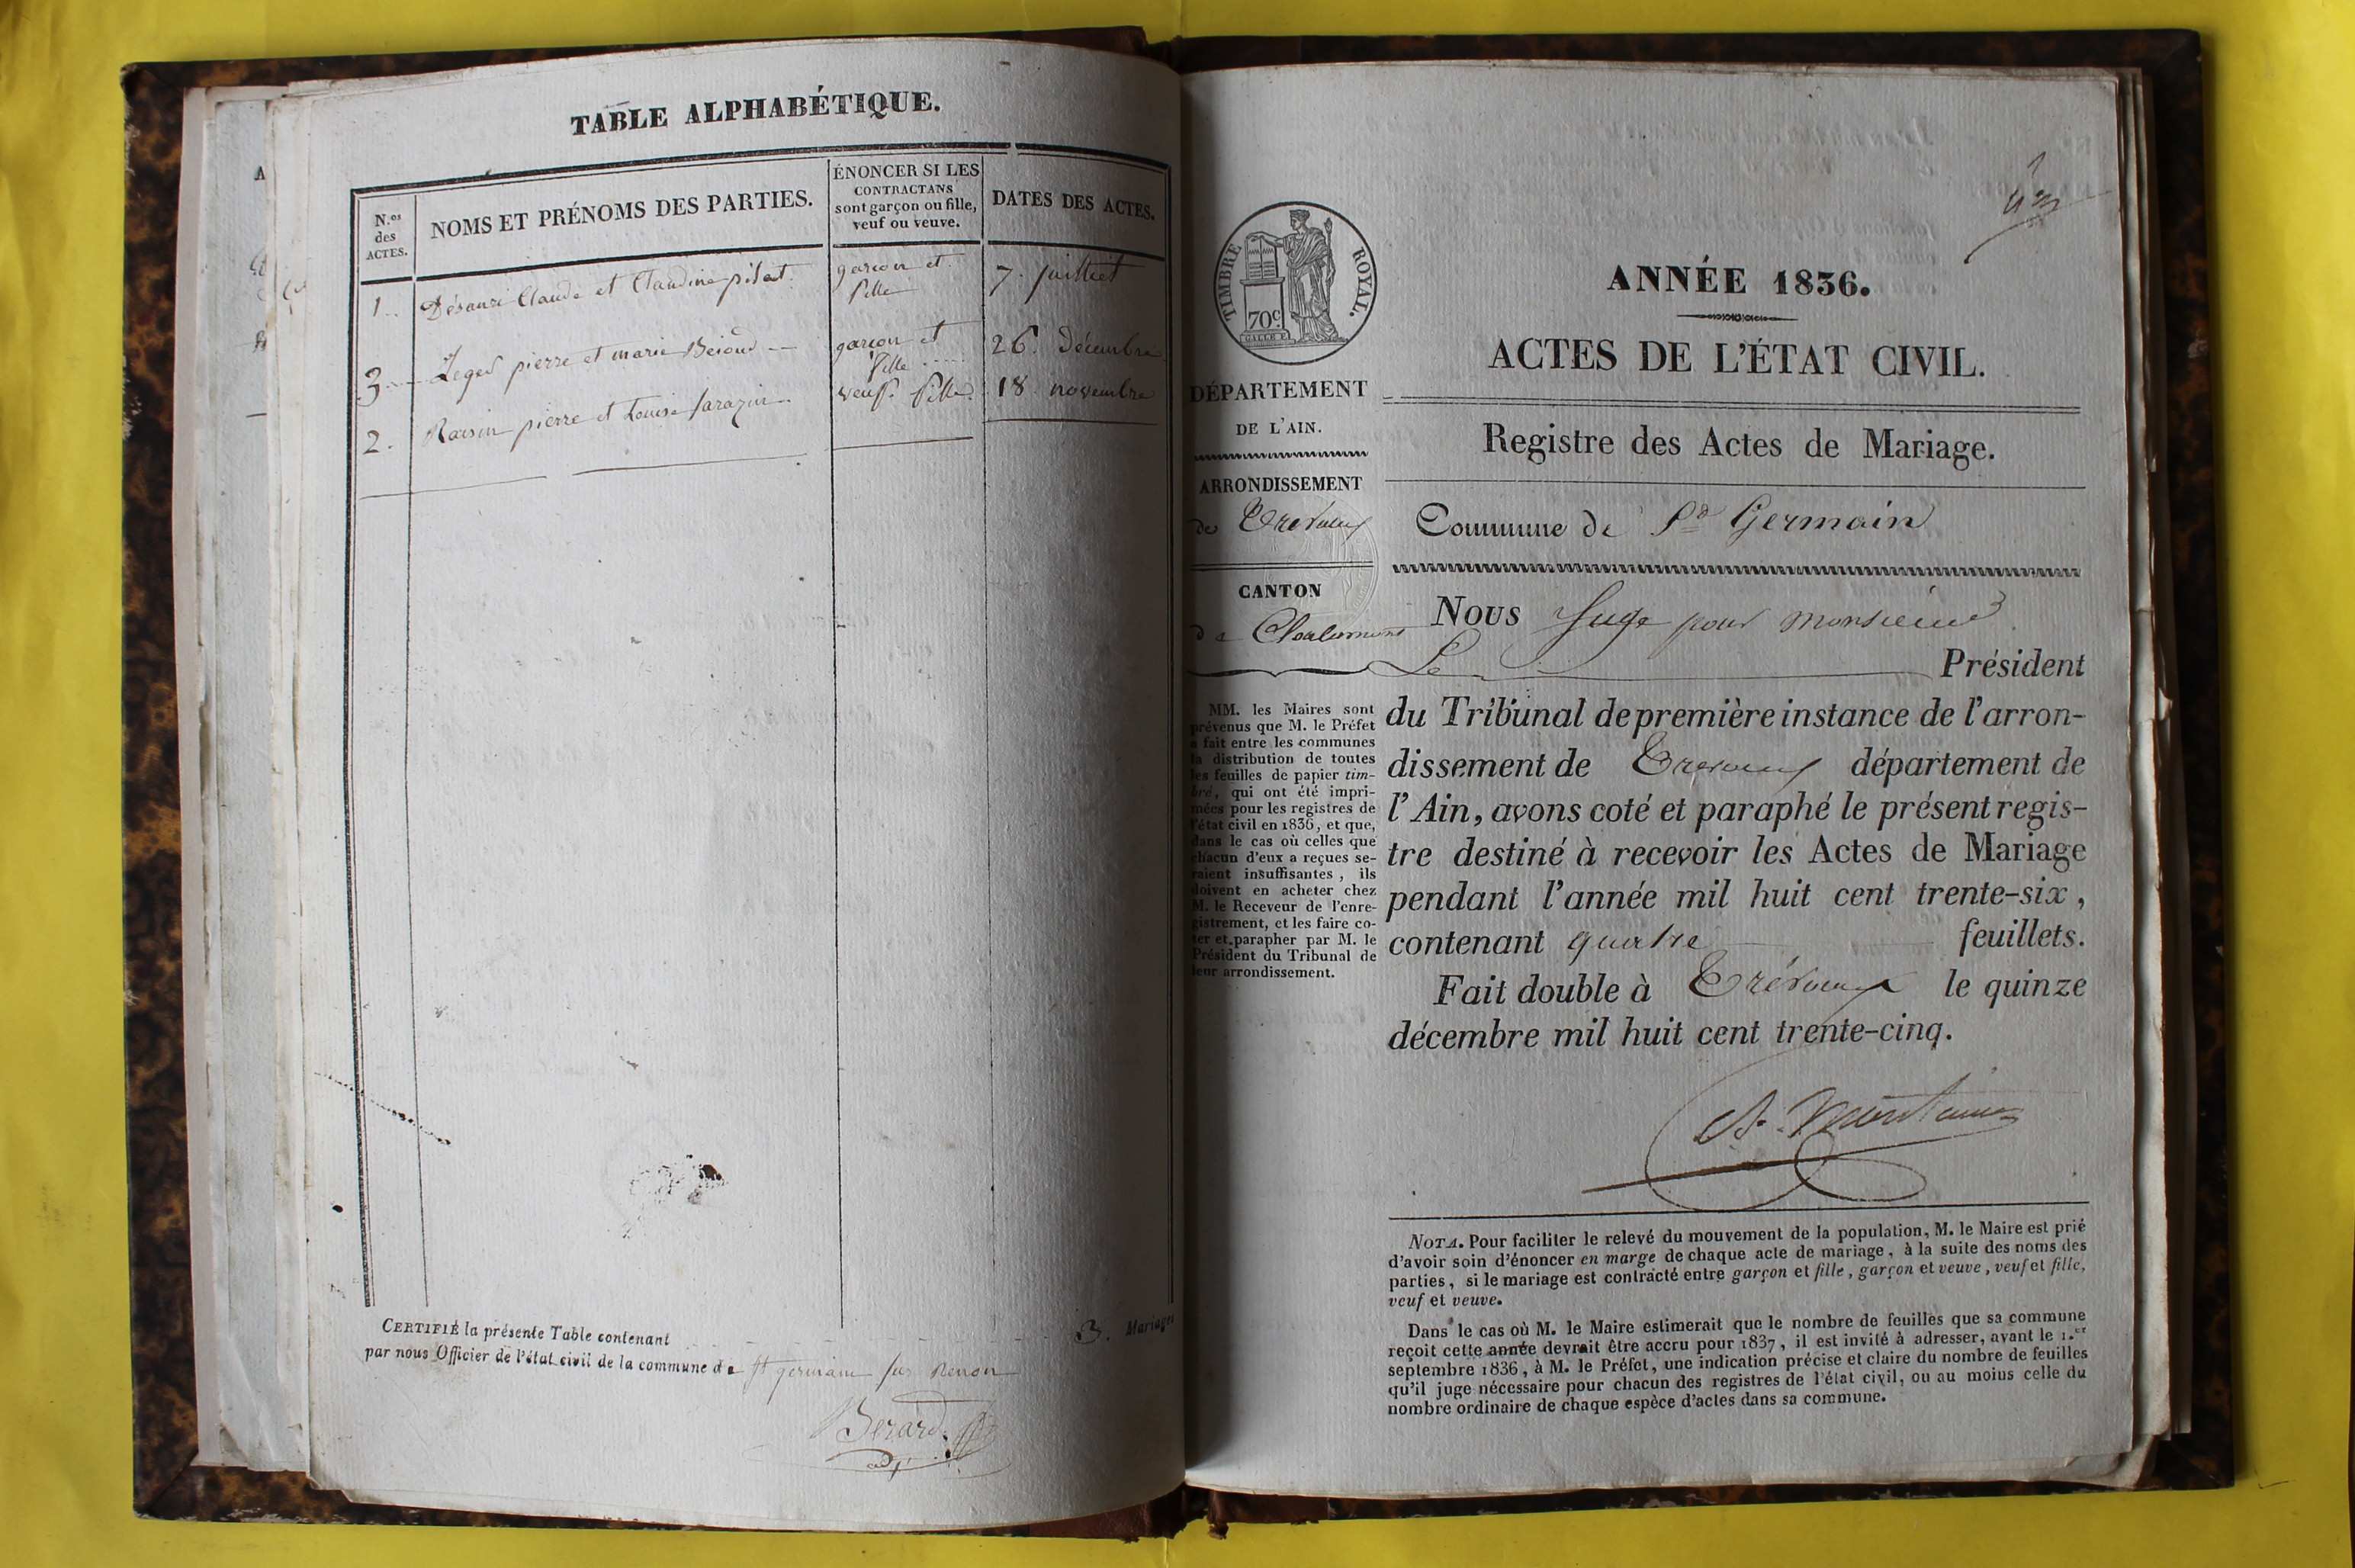 TABLE ALPHABÉTIQUE.
N.os des ACTES.
NOMS ET PRÉNOMS DES PARTIES.
ÉNONCER SI LES
CONTRACTANS
sont garçon ou fille,
veuf ou veuve.
DATES DES ACTES.
1. Claude et Claudine pilat. garcon et fille 7. juillet
3 Leger pierre et marie garcon et fille 26. Décembre
2. Raisin pierre et Louise Sarazin veuf. fille. 18 novembre
CERTIFIÉ la présente Table contenant 3. Mariages
par nous Officier de l'état civil de la commune de St germain sur Renon
Berard
adj.
TIMBRE ROYAL.
70c
DÉPARTEMENT
DE L'AIN.
ARRONDISSEMENT
de Trevoux
CANTON
de Chalamont
MM. les Maires sont
prévenus que M. le Préfet
a fait entre les communes
la distribution de toutes
les feuilles de papier tim-
bré, qui ont été impri-
mées pour les registres de
l'état civil en 1836, et que,
dans le cas où celles que
chacun d'eux a reçues se-
raient insuffisantes, ils
doivent en acheter chez
M. le Receveur de l'enre-
gistrement, et les faire co-
ter et parapher par M. le
Président du Tribunal de
leur arrondissement.
ANNÉE 1836.
ACTES DE L'ÉTAT CIVIL.
Registre des Actes de Mariage.
Commune de St Germain
Nous Juge pour monsieur
Le Président
du Tribunal de première instance de l'arron-
dissement de Trevoux département de
l'Ain, avons coté et paraphé le présent regis-
tre destiné à recevoir les Actes de Mariage
pendant l'année mil huit cent trente-six,
contenant quatre feuillets.
Fait double à Trévoux le quinze
décembre mil huit cent trente-cinq.
NOTA. Pour faciliter le relevé du mouvement de la population, M. le Maire est prié
d'avoir soin d'énoncer en marge de chaque acte de mariage, à la suite des noms des
parties, si le mariage est contracté entre garçon et fille, garçon et veuve, veuf et fille,
veuf et veuve.
Dans le cas où M. le Maire estimerait que le nombre de feuilles que sa commune
reçoit cette année devrait être accru pour 1837, il est invité à adresser, avant le 1.er
septembre 1836, à M. le Préfet, une indication précise et claire du nombre de feuilles
qu'il juge nécessaire pour chacun des registres de l'état civil, ou au moins celle du
nombre ordinaire de chaque espèce d'actes dans sa commune.